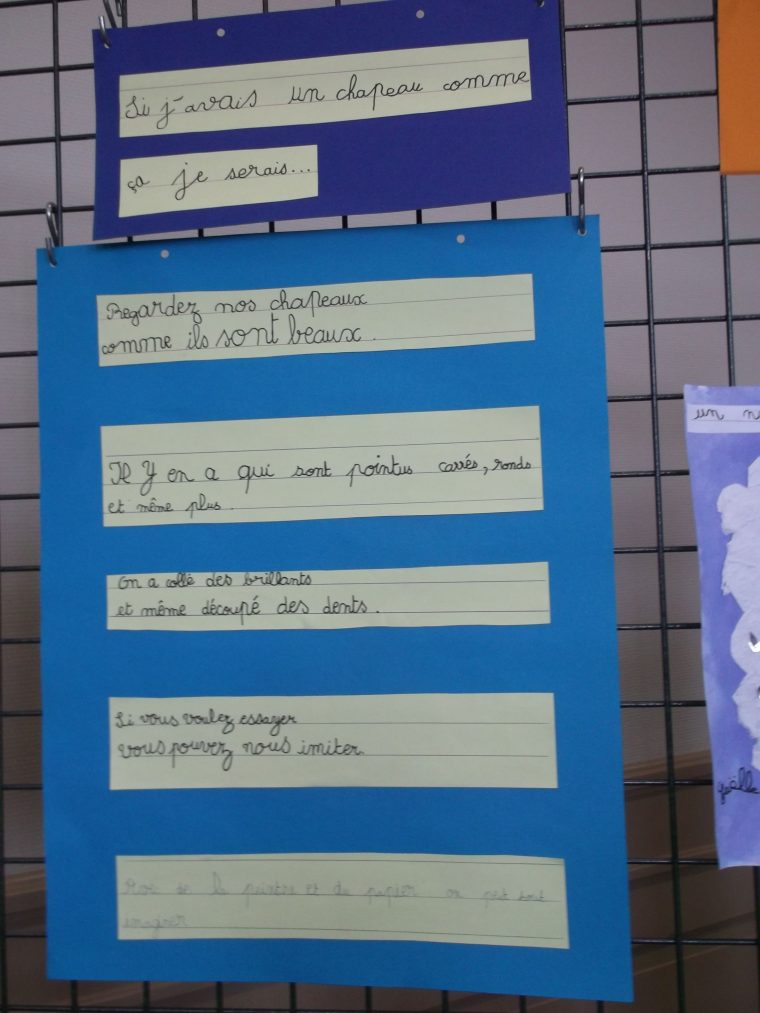 Si j'avais un chapeau comme
ça je serais...
Regardez nos chapeaux
comme ils sont beaux.
Il y en a qui sont pointus carrés, ronds
et même plus.
On a collé des brillants
et même découpé des dents.
Si vous voulez essayer
vous pouvez nous imiter.
de la et du papier on peut tout
imaginer
un
gaëlle